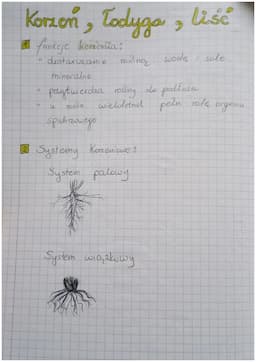 Korzeń, łodyga, liść
1 funkcje korzenia:
- dostarczanie roślinę wodę i sole
mineralne
- przytwierdza rośliny do podłoża
- u roślin wieloletnich pełni rolę organu
spichrzowego
2 Systemy korzeniowe:
System palowy
System wiązkowy